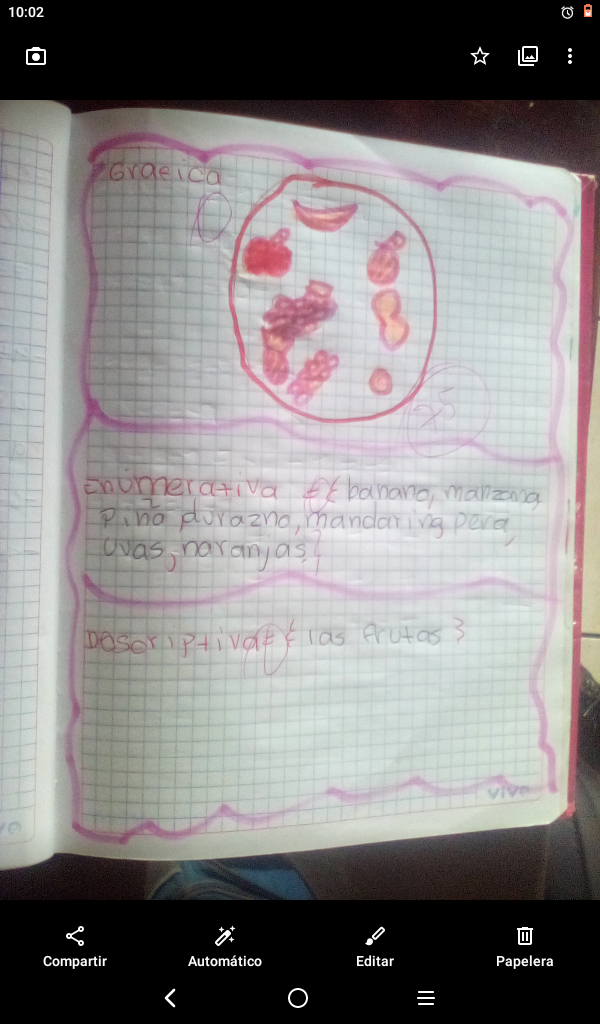 10:02
Grafica
Enumerativa { { banano, manzana,
piña durazno, mandarina pera,
uvas, naranjas }
Descriptiva { { las frutas }
vivo
Compartir
Automático
Editar
Papelera